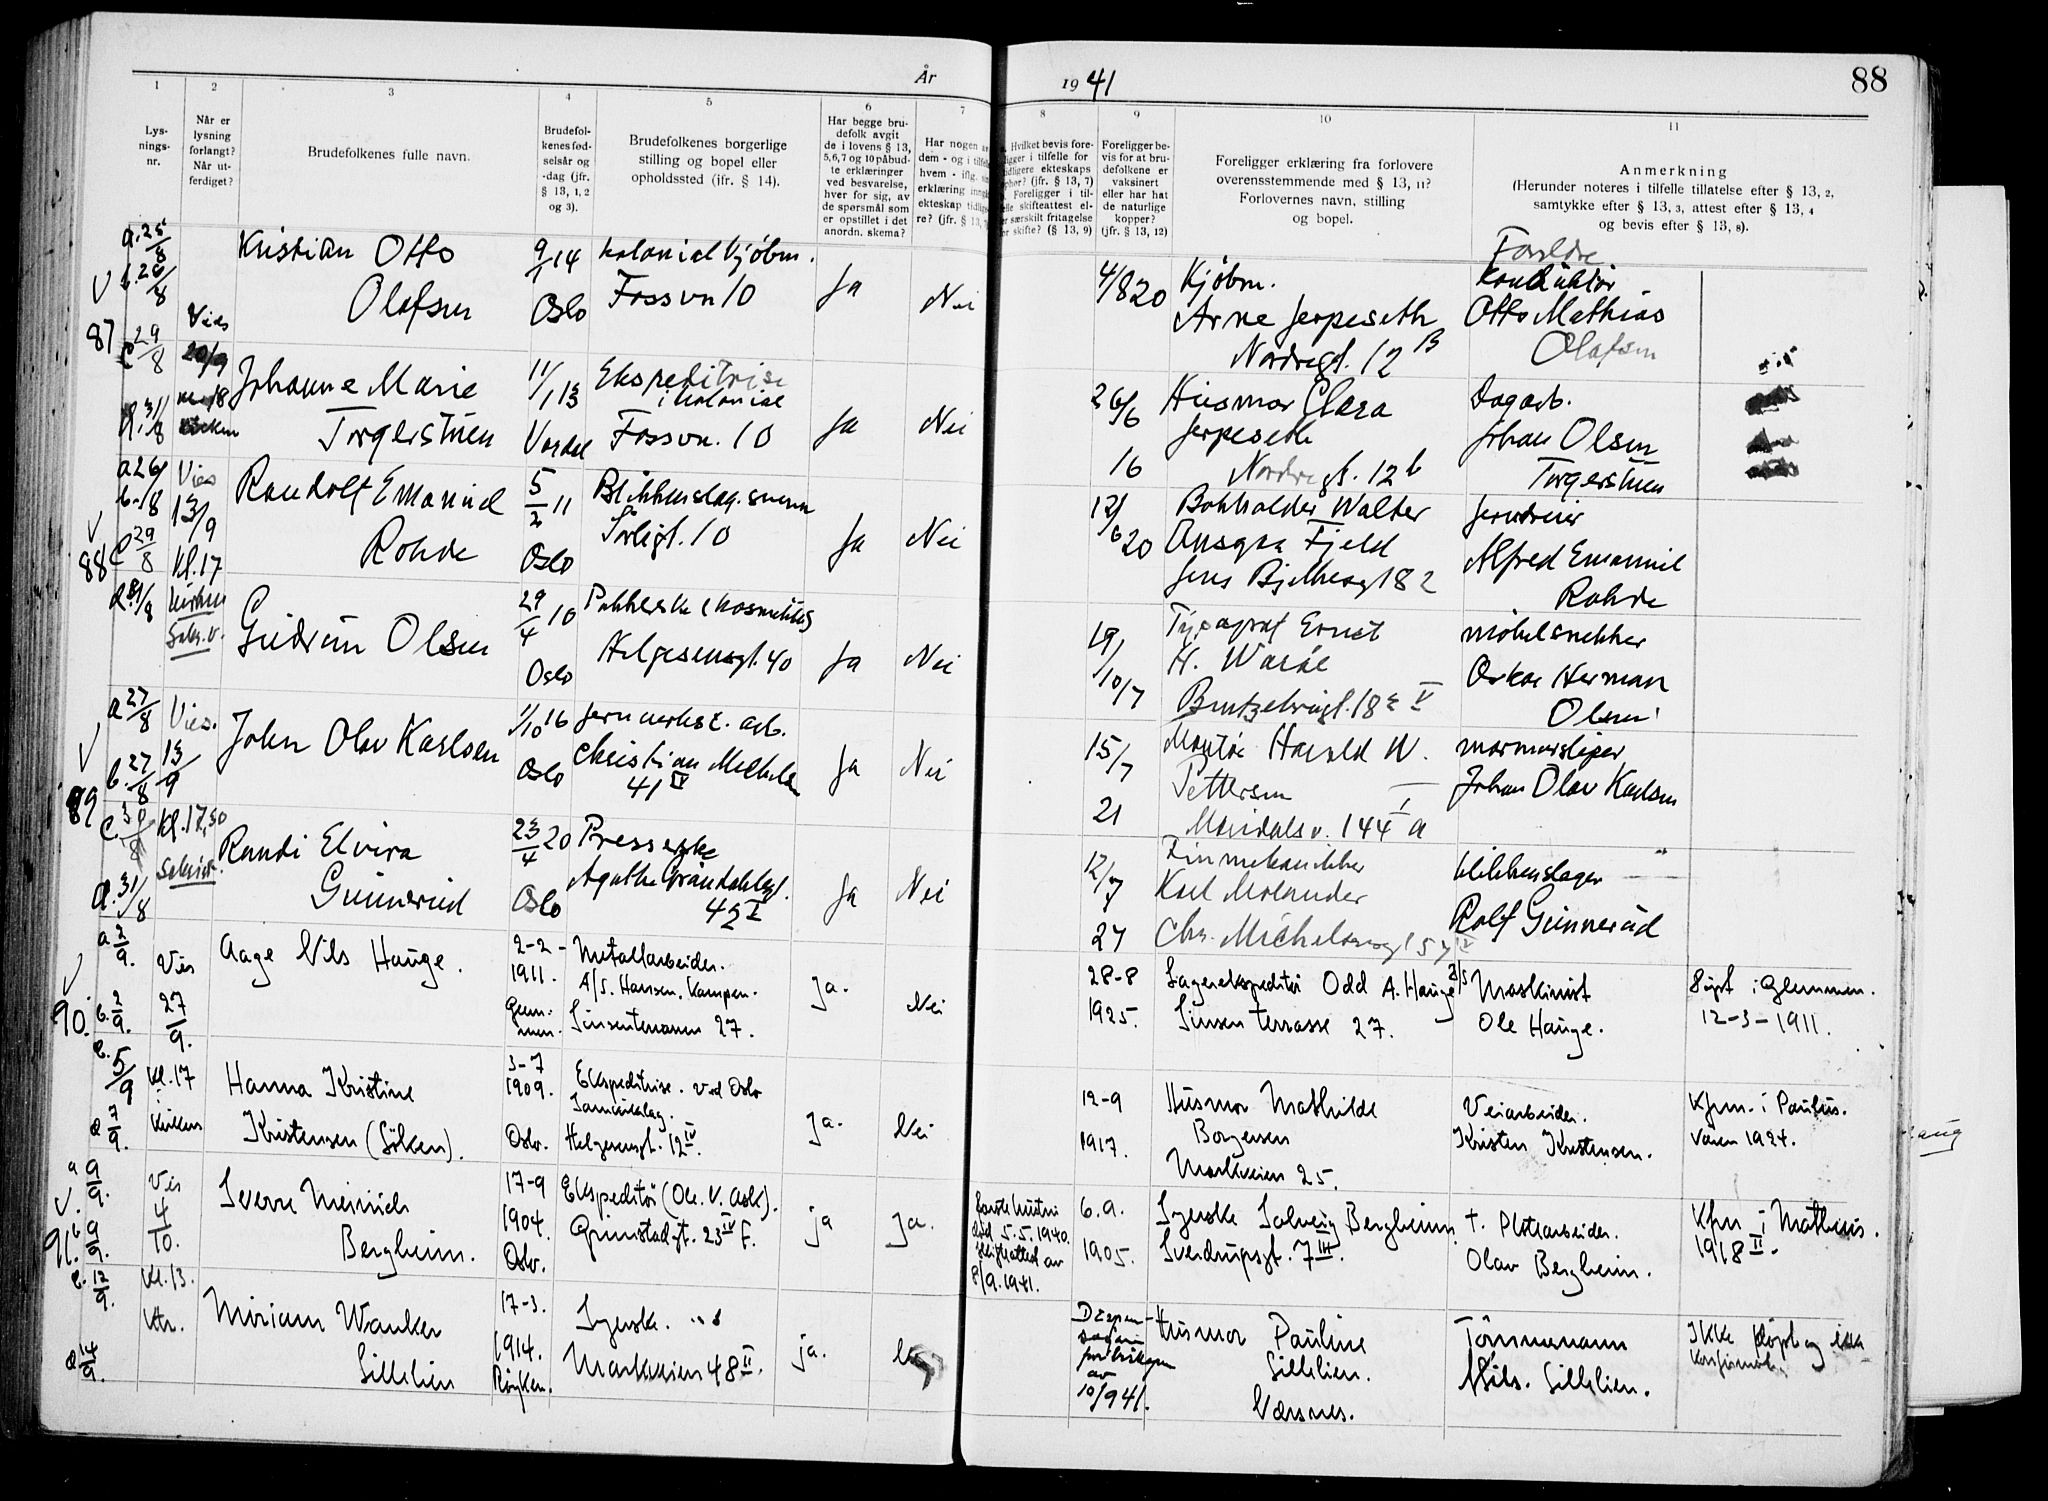 År
19 41
88
1
2
3
4
5
6
7
8
9
10
11
Lys-
nings-
nr.
Når er
lysning
forlangt?
Når ut-
ferdiget?
Brudefolkenes fulle navn.
Brudefol-
kenes fød-
selsår og
-dag (jfr.
§ 13, 1, 2
og 3).
Brudefolkenes borgerlige
stilling og bopel eller
opholdssted (ifr. § 14).
Har begge bru-
defolk avgit
de i lovens § 13,
5,6,7 og 10 påbud-
te erklæringer
ved besvarelse,
hver for sig, av
de spørsmål som
er opstillet i det
anordn. skema?
Har nogen
dem - og i
hvem - iflg.
erklæring
ekteskap
re? (jfr. § 13,
Hvilket bevis fore-
ligger i tilfelle for
ekteskaps
(jfr. § 13, 7)
Foreligger i til-
skifteattest el-
særskilt fritagelse
skifte? (§ 13, 9)
Foreligger be-
vis for at bru-
defolkene er
vaksinert
eller har hat
de naturlige
kopper?
(jfr. § 13, 12)
Foreligger erklæring fra forlovere
overensstemmende med § 13, 11?
Forlovernes navn, stilling
og bopel.
Anmerkning
(Herunder noteres i tilfelle tillatelse efter § 13, 2,
samtykke efter § 13, 3, attest efter § 13, 4
og bevis efter § 13, 8).
Foreldre
87
a. 25/8
b. 26/8
c 29/8
d. 31/8
Vies
20/9
Kristian Otto
Olafsen
9/1 14
Oslo
kolonial kjøbm.
Fossvn 10
Ja
Nei
4/8 20
Kjøbm.
Arne Jerpeseth
Nordregt. 12 B
konduktør
Otto Mathias
Olafsen
Johanne Marie
Torgerstuen
11/1 13
Vardal
Ekspeditrise
i kolonial
Fossvn. 10
Ja
Nei
26/6
16
Husmor Clara
Jerpeseth
Nordregt. 12 b
Dagarb.
Johan Olsen
Torgerstuen
88
a 26/
b. /8
c 29/8
d. 31/8
Vies
13/9
kl. 17
kirken
Randolf Emanuel
Rohde
5/2 11
Oslo
Blikkenslag. svenn
Sørligt. 10
Ja
Nei
12/6 20
Bokholder Walter
Ansgar Fjeld
Jens Bjelkesgt 82
Jerndreier
Alfred Emanuel
Rohde
Gudrun Olsen
29/4 10
Oslo
Pakkerske i kosmetikk
Helgesensgt. 40
Ja
Nei
19/
10/7
Typograf Ernst
H.
møbelsnekker
Oskar Herman
Olsen
89
a 27/8
b. 27/8
c.
d. 31/8
Vies.
13/9
Kl. 17,30
John Olav Karlsen
1/10 16
Oslo
Jernverkst. arb.
Christian Michels
41 IV
Ja
Nei
15/7
21
Montør Harald W.
Pettersen
Maridalsv. 144 I a
marmorsliper
Johan Olav Karlsen
Randi Elvira
Gunnerud
23/4 20
Oslo
Presserske
Agathe Grøndahlsgt.
45 I
Ja
Nei
12/7
27
Finmekanikker
Karl Molander
Chr. Michelsensgt 57 IV
blikkenslager
Rolf Gunnerud
90.
a 2/9.
b. 2/9.
c. 5/9
d 7/9.
Vies
27/9.
Kl. 17
kirken
Aage Nils Hauge.
2-2-
1911.
Glem-
men.
Metallarbeider.
A/S. Hansen, Kampen.
Sinsenterrassen 27.
ja.
Nei
28-8
1925.
Lagerekspeditør Odd A. Hauge
Sinsen terrasse 27.
Maskinist
Ole Hauge.
Døpt i Glemmen.
12-3-1911.
Hanna Kristine
Kristensen (Söken).
3-7
1909.
Oslo.
Ekspeditrise. ved Oslo
Samvirkelag.
Helgesensgt. 12 IV
ja.
Nei
12-9
1917.
Husmor Mathilde
Borgersen
Markveien 25.
Veiarbeider.
Kristen Kristensen.
Kfm. i Paulus.
Våren 1924.
91.
a 9/9.
b 9/9.
c. 12/9.
d 14/9.
Vies
4/10.
Kl. 13.
Ktr.
Sverre Meinich
Bergheim.
17-9
1904.
Oslo.
Ekspeditør (Oe. V. Oslo).
Grimstadgt. 23 IV F.
ja
Ja.
første hustru
død 5.5.1940.
skifteattest av
8/9.1941.
6.9.
1905.
Syerske Solveig Bergheim
Sverdrupsgt. 7 III.
† Platearbeider.
Olav Bergheim.
Kfm i Matheus.
1918 II.
Miriam Wanker
Sillilien
17-3.
1914.
Røyken.
Syerske.
Markveien 48 II.
ja.
Dispen-
sasjon
fra biskopen
av
10/9 41.
Husmor Pauline
Sillilien.
Værsnes.
Tømmermann
Nils. Sillilien.
Ikke døpt og ikke
konfirmert.